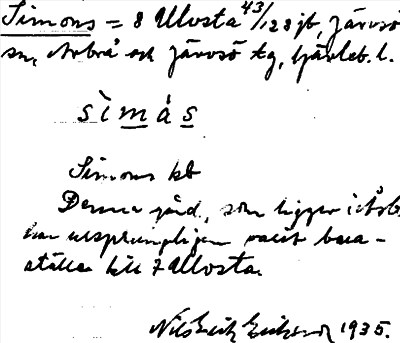 Simons = 8 Ullosta 43/128 jb, Järvsö
sn, Arbrå och Järvsö tg, Gävleb. l.
sìmás
Simons kb
Denna gård, som ligger i Åsb
har ursprungligen varit bara-
ställe till 7 Ullosta.
Nils Erik Eriksson 1935.